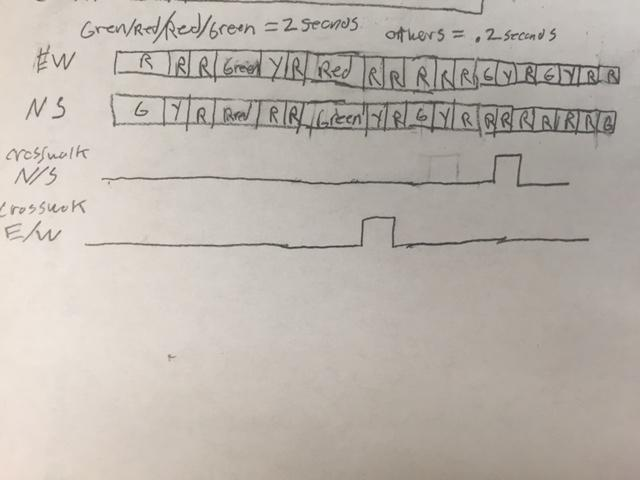 Gren/Red/Red/Green = 2 seconds others = .2 seconds
EW R R R Green Y R Red R R R R R G Y R G Y R R
NS G Y R Rred R R Green Y R G Y R R R R R R R G
crosswalk
N/S
crosswok
E/W